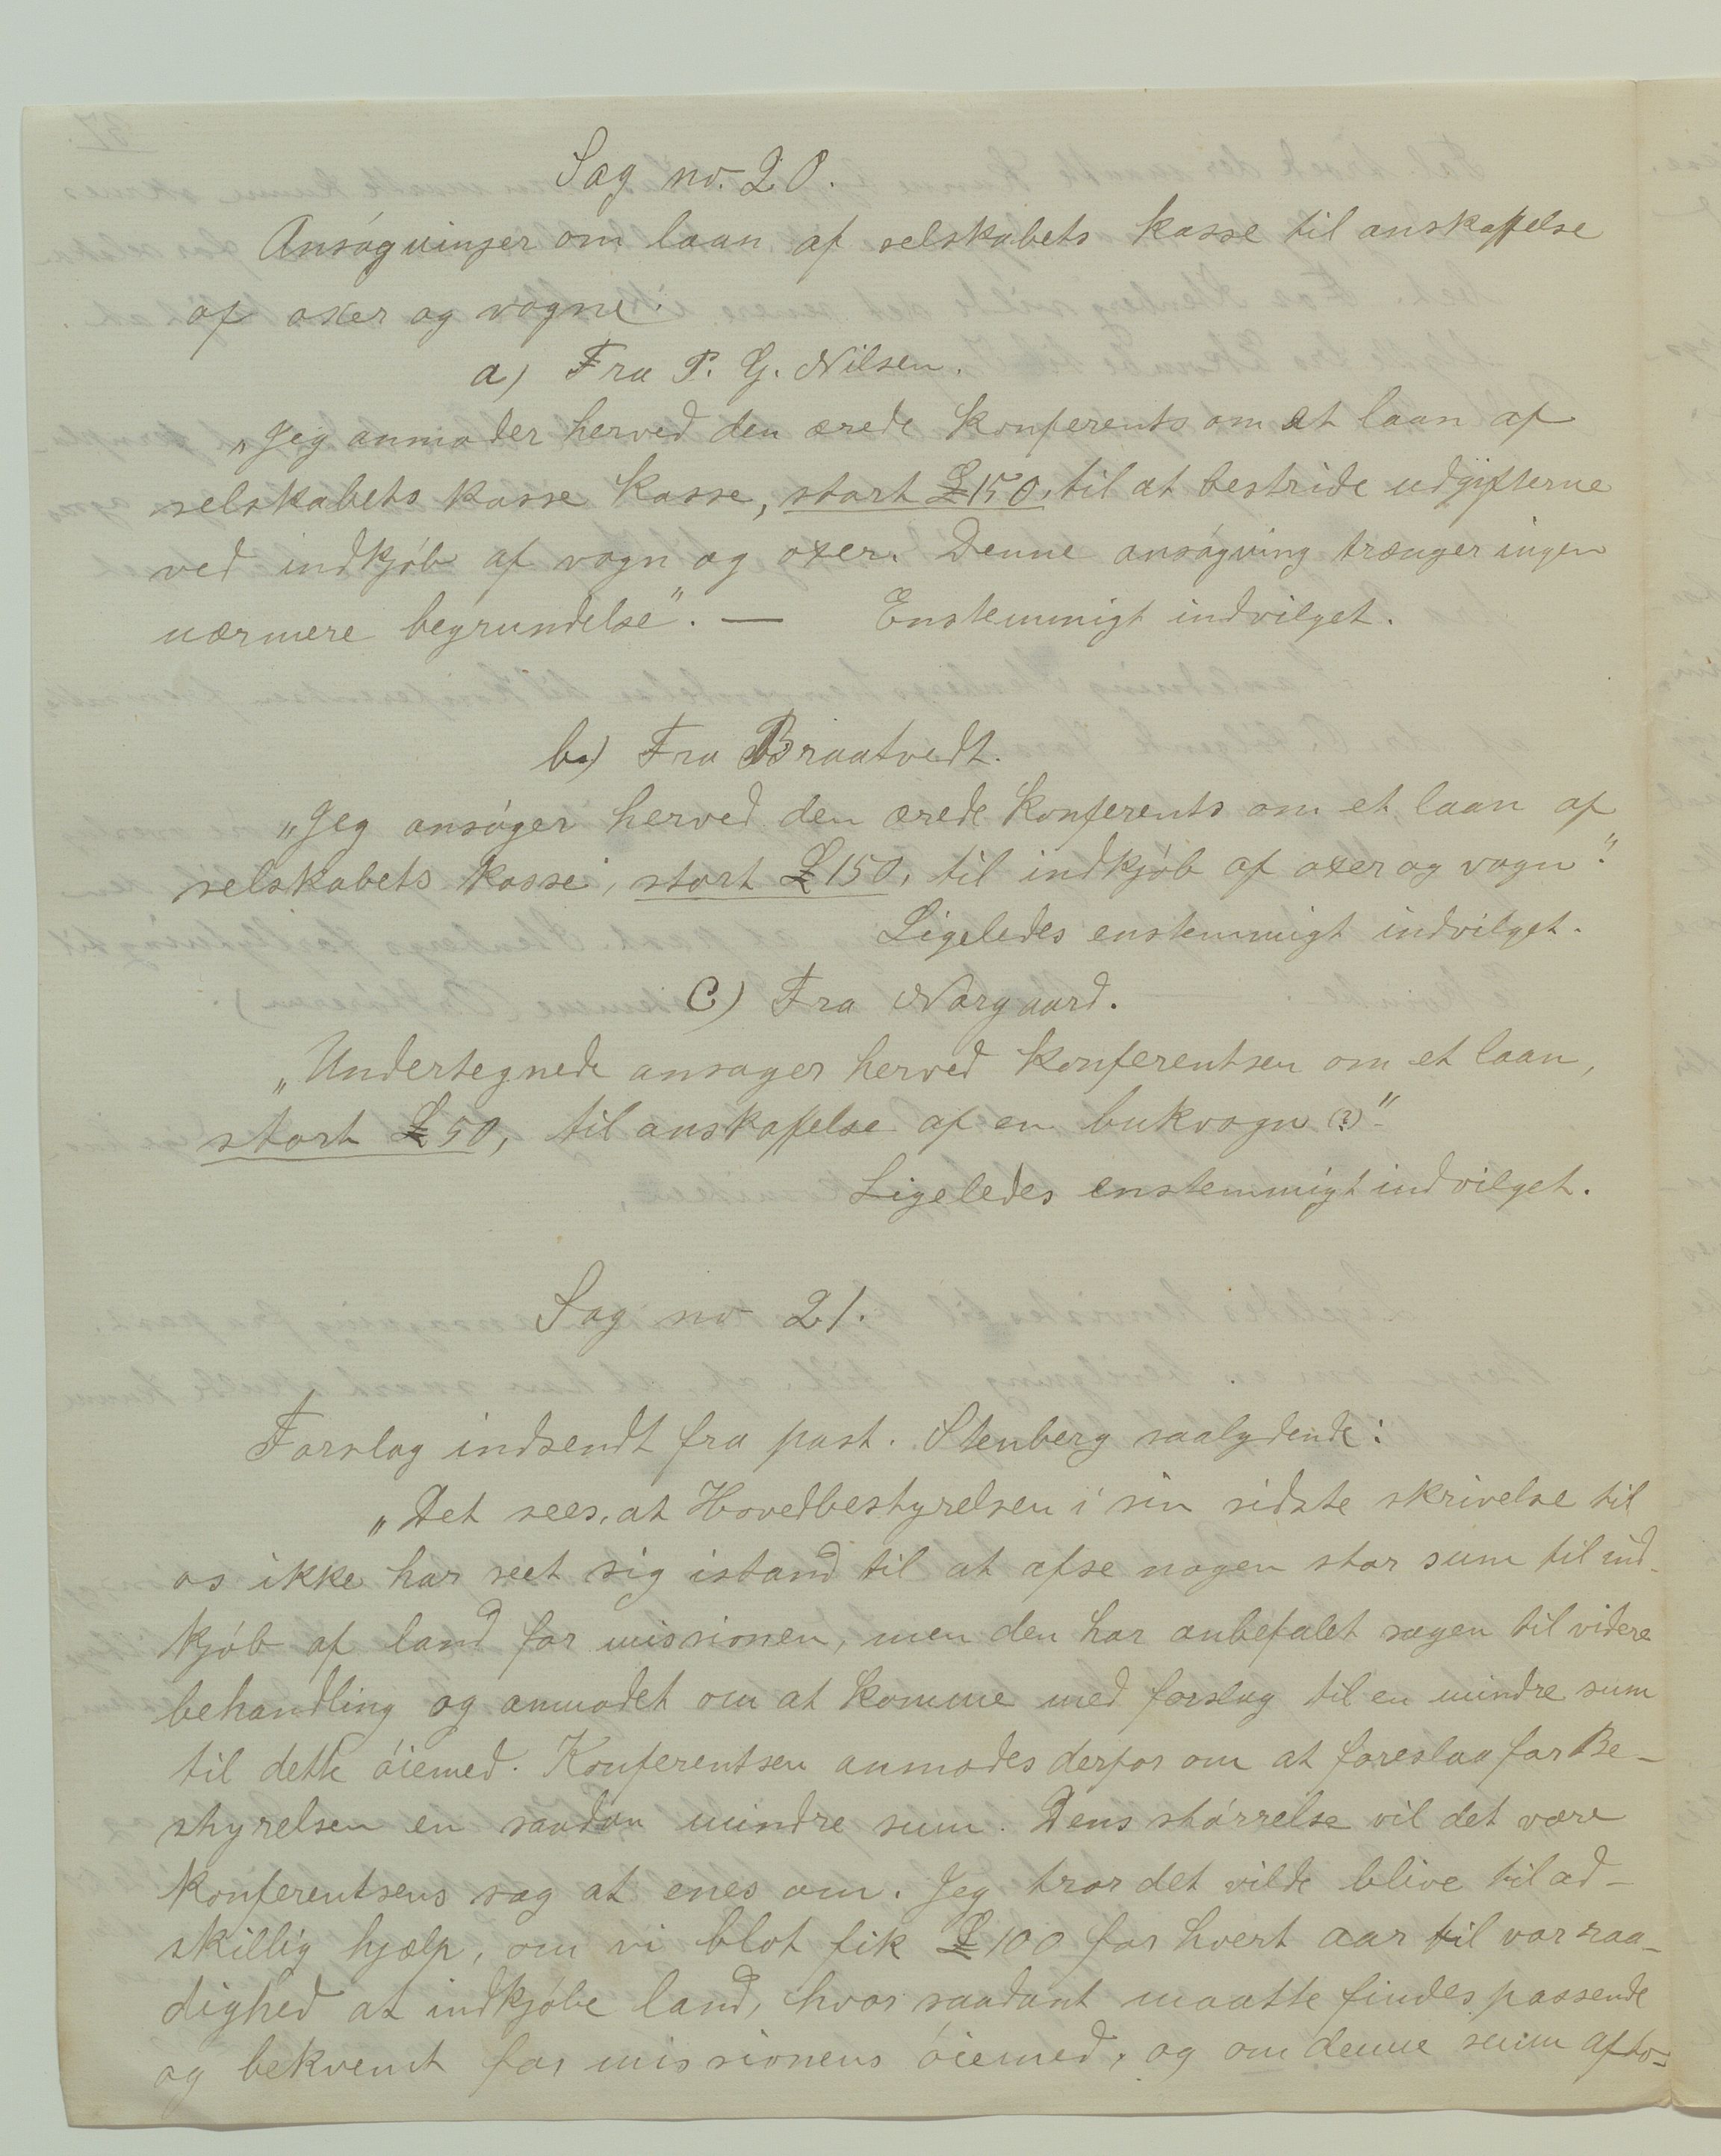 Sag no. 20.
Ansøgninger om laan af selskabets kasse til anskaffelse
af oxer og vogne.
a) Fra P. G. Nilsen.
„Jeg anmoder herved den ærede konferents om et laan af
selskabets kasse kasse, stort £150, til at bestride udgifterne
ved indkjøb af vogn og oxer. Denne ansøgning trænger ingen
nærmere begrundelse". — Enstemmigt indvilget.
b) Fra Braatvedt.
„Jeg ansøger herved den ærede konferents om et laan af
selskabets kasse, stort £150, til indkjøb af oxer og vogn".
Ligeledes enstemmigt indvilget.
C) Fra Norgaard.
„Undertegnede ansøger herved konferentsen om et laan,
stort £50, til anskaffelse af en bukvogn (?)"
Ligeledes enstemmigt indvilget.
Sag no 21.
Forslag indsendt fra past. Stenberg saalydende:
„Det sees, at Hovedbestyrelsen i sin sidste skrivelse til
os ikke har seet sig istand til at afse nogen stor sum til ind-
kjøb af land for missionen, men den har anbefalet sagen til videre
behandling og anmodet om at komme med forslag til en mindre sum
til dette øiemed. Konferentsen anmodes derfor om at foreslaa for Be-
styrelsen en saadan mindre sum. Dens størrelse vil det være
konferentsens sag at enes om. Jeg tror det vilde blive til ad-
skillig hjælp, om vi blot fik £100 for hvert aar til vor raa-
dighed at indkjøbe land, hvor saadant maatte findes passende
og bekvemt for missionens øiemed, og om denne sum afto-